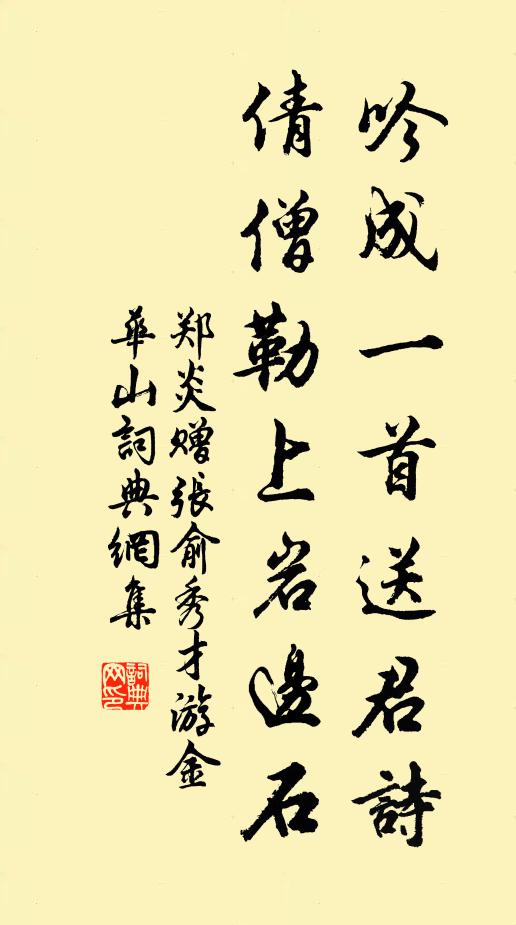 吟成一首送君詩
倩僧勒上岩邊石
郑炎赠張俞秀才游金
華山詞典網集
詞典
网印